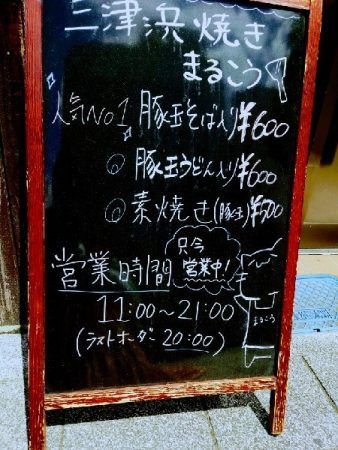 三津浜焼き
まるこう
人気No1 豚玉そば入り¥600
◎ 豚玉うどん入り¥600
◎ 素焼き(豚玉)¥500
只今
営業中!
営業時間
11:00～21:00
(ラストオーダー 20:00)
まるこう